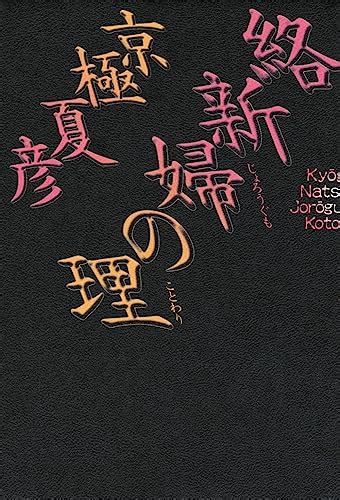 絡新婦の理
じょろうぐも
ことわり
京極夏彦
Kyō
Nats
Jorōgu
Koto